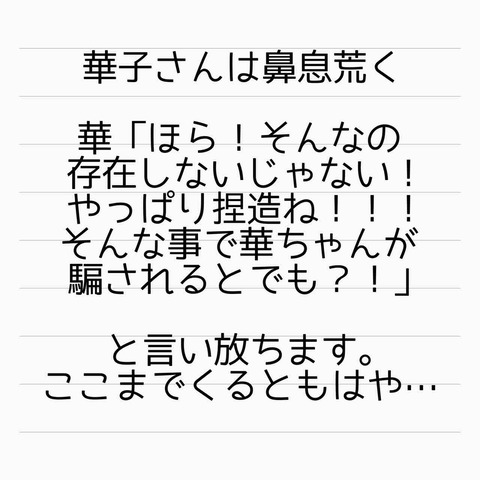 華子さんは鼻息荒く
華「ほら！そんなの
存在しないじゃない！
やっぱり捏造ね！！！
そんな事で華ちゃんが
騙されるとでも？！」
と言い放ちます。
ここまでくるともはや…